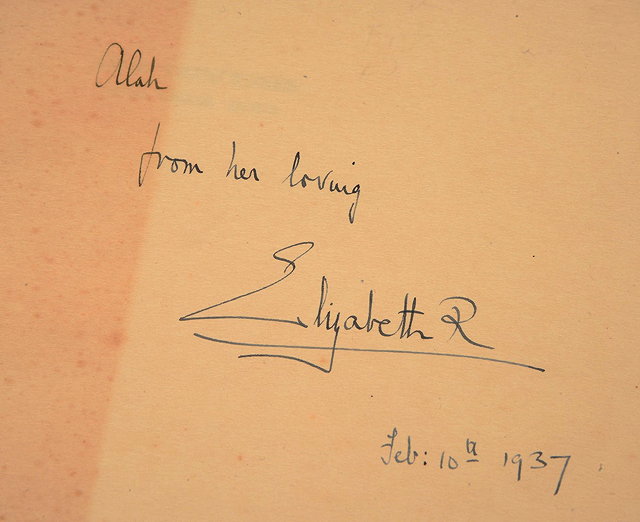 Alah
from her loving
Elizabeth R
Feb: 10th 1937